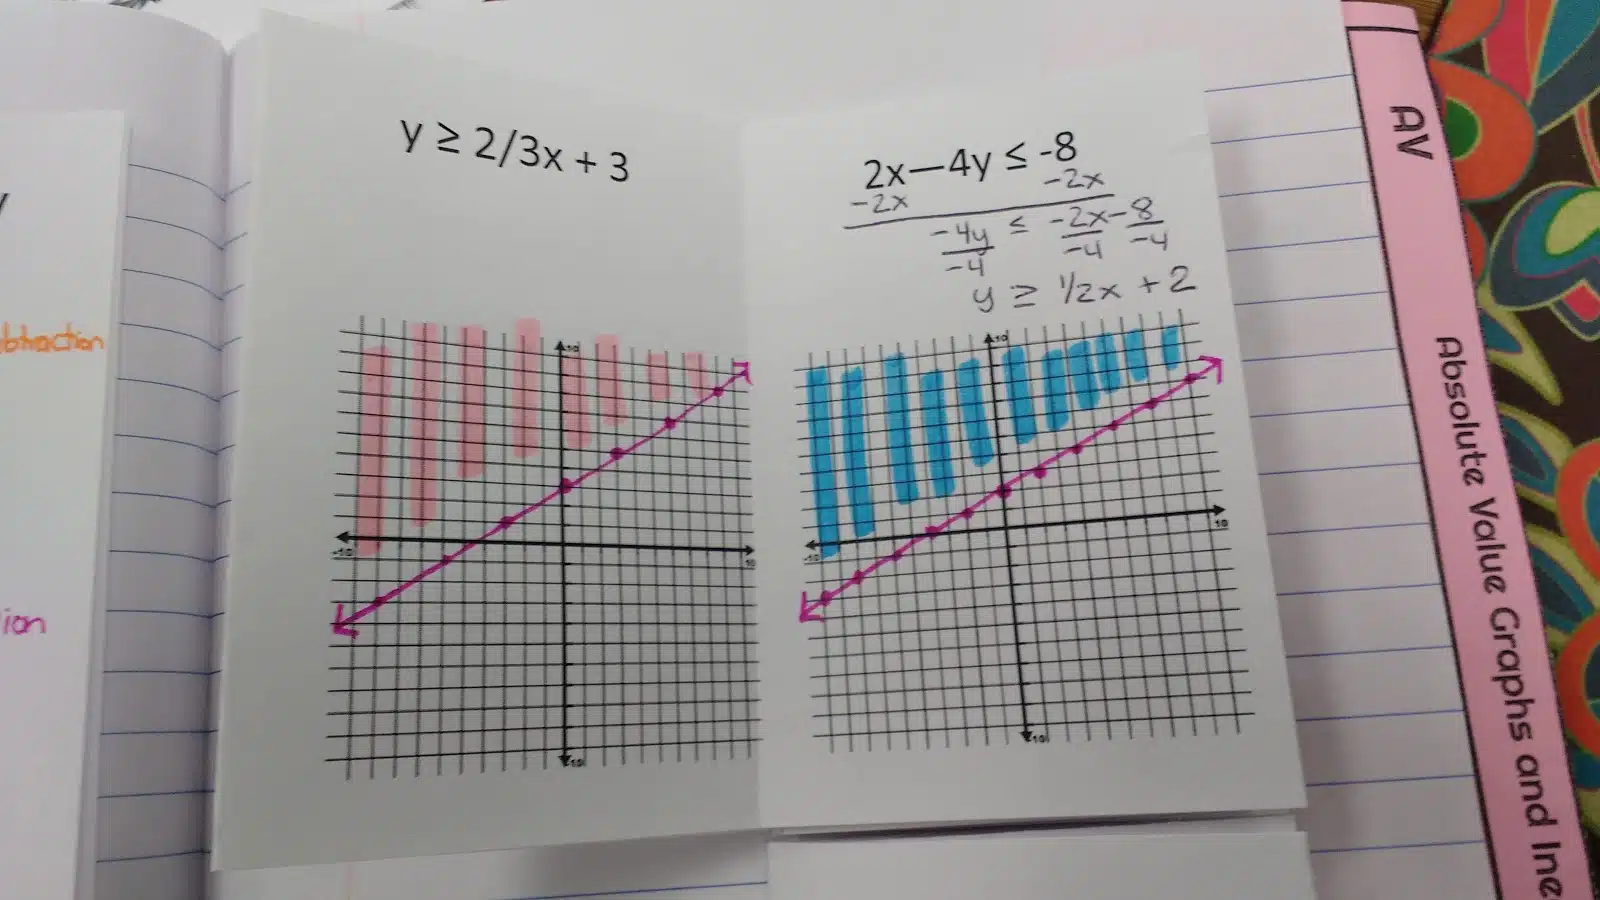 btraction
ion
y ≥ 2/3x + 3
10
-10
10
-10
2x—4y ≤ -8
-2x -2x
-4y ≤ -2x-8
-4 -4 -4
y ≥ 1/2x + 2
10
-10
10
-10
AV
Absolute Value Graphs and Ine